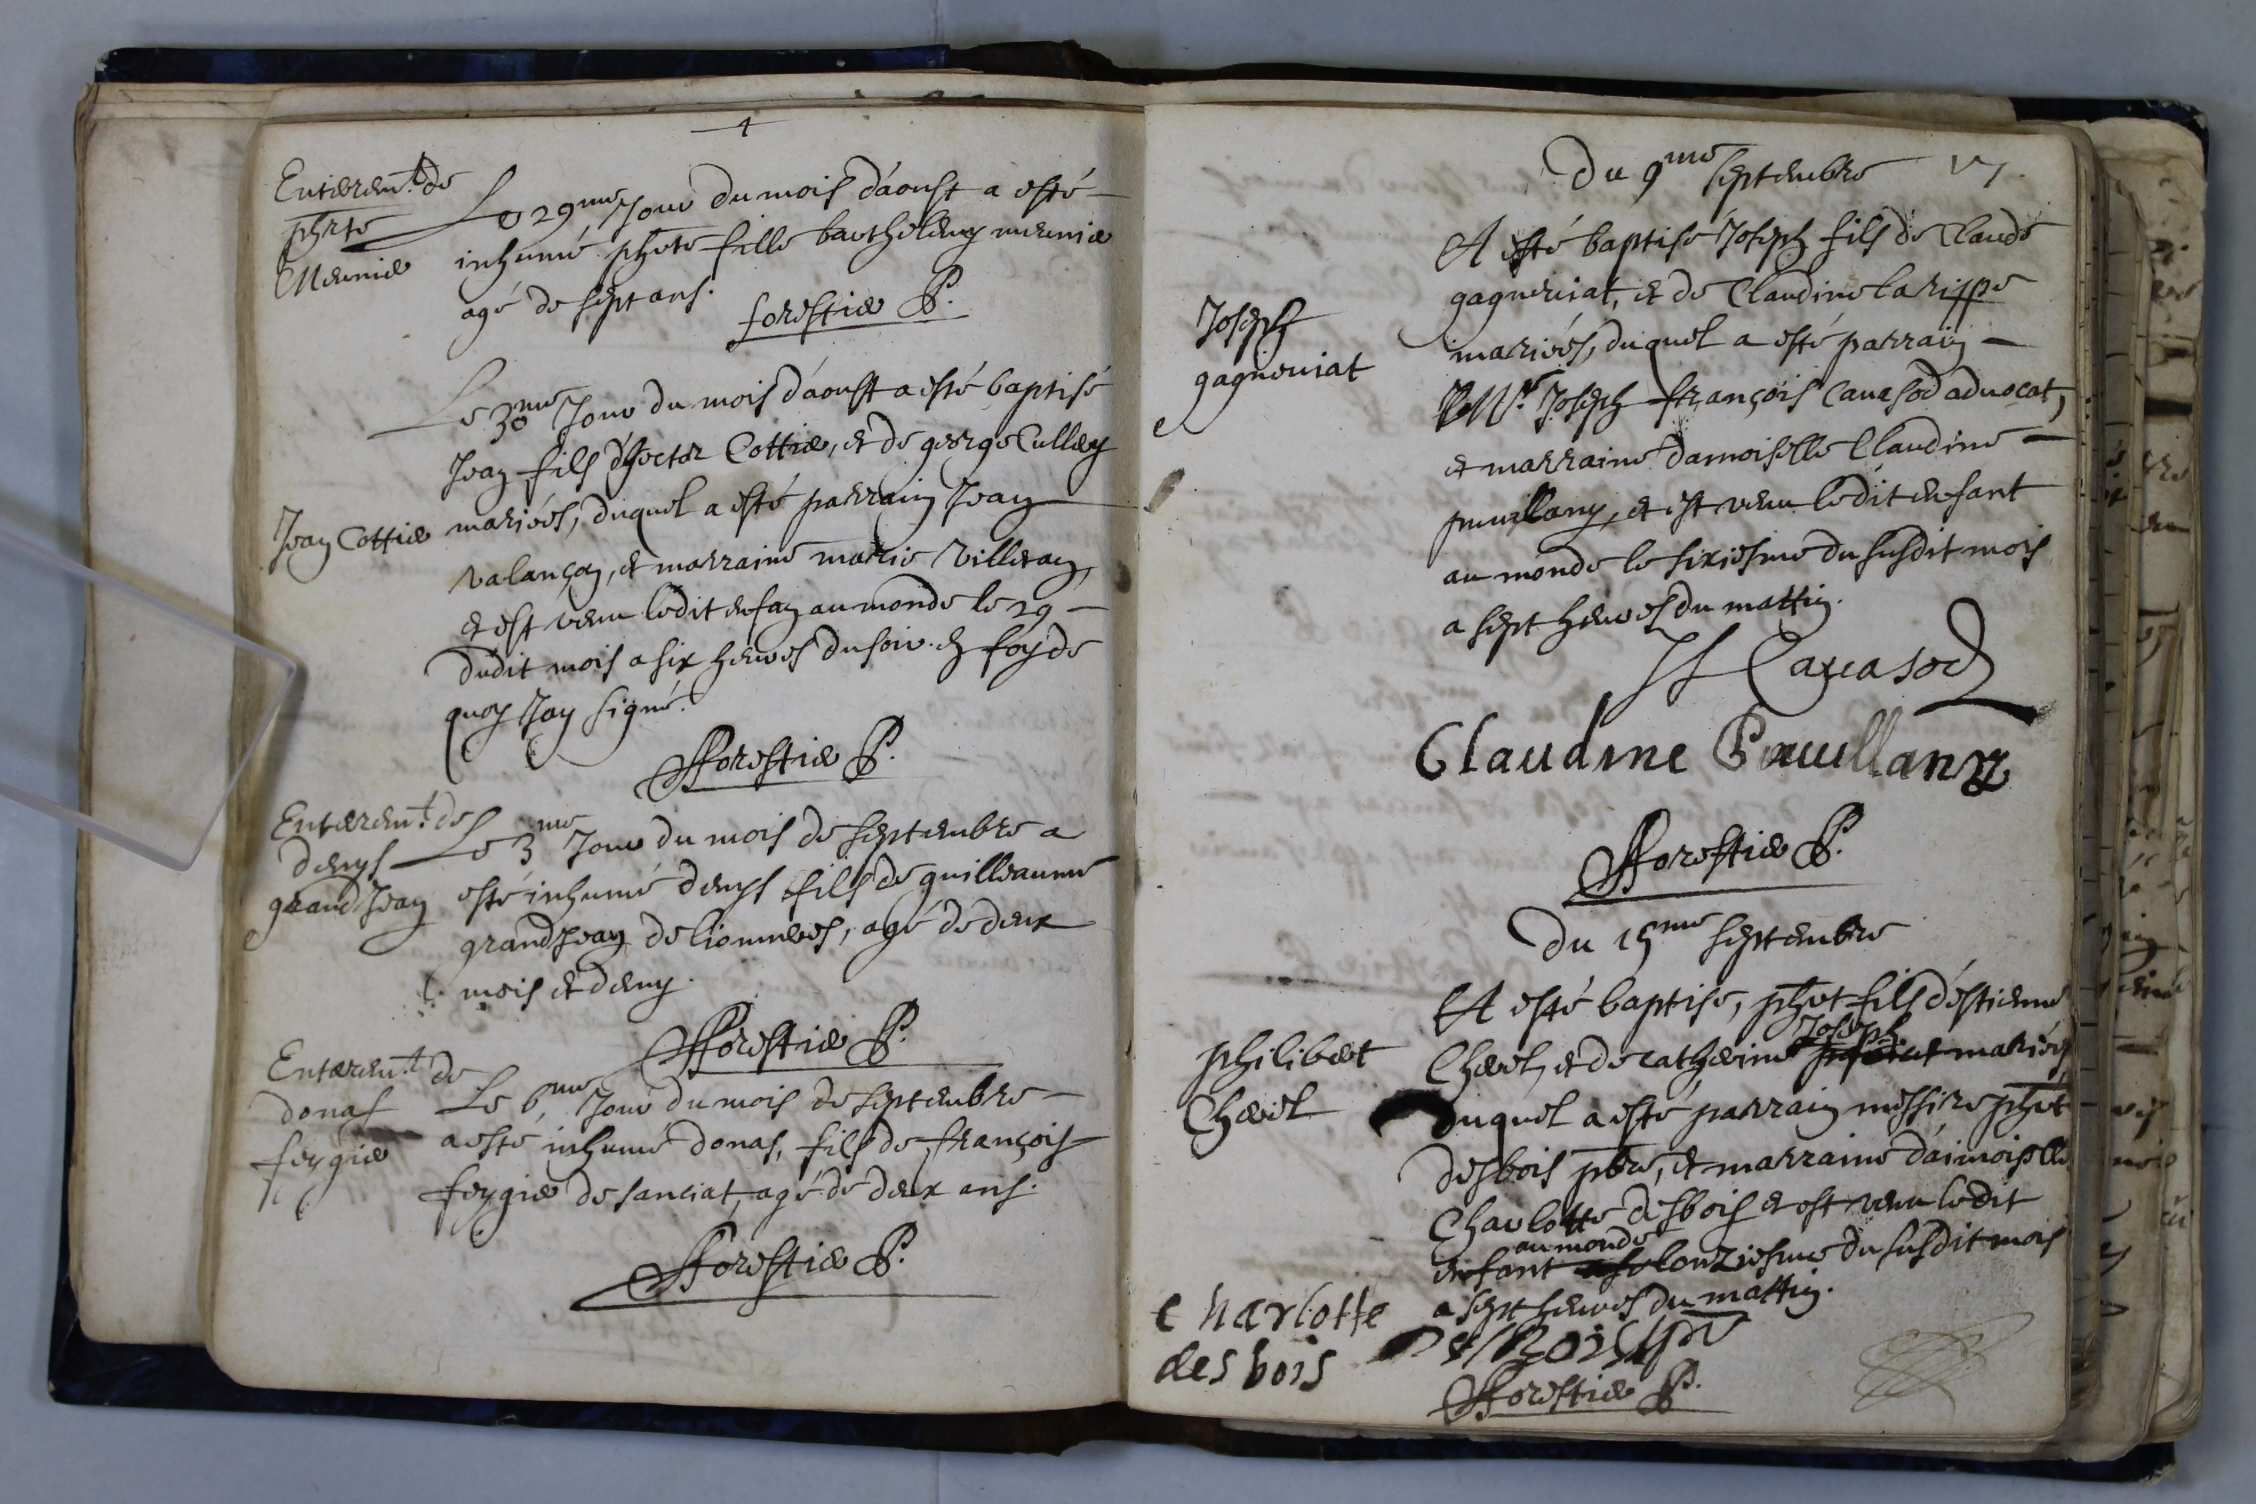 Enterem.t de
phte
Meunier
Le 29me Jour du mois d'aoust a esté
inhumé phete fille barthelemy meunier
agé de sept ans.
forestier P.
Le 30me Jour du mois d'aoust a esté baptisé
Jean fils d'hector Cottier, et de george Cullery
Jean Cottier
mariés, duquel a esté parrain Jean
valançon, et marraine marie Villeran,
et est venu ledit enfan au monde le 29
dudit mois a six heures du soir. en foy de
quoy Jay signé.
Forestier P.
Enterem.t de
denys
grand Jean
Le 3me Jour du mois de septembre a
esté inhumé denys fils de guilleaume
grandJean de lionnieres, agé de deux
mois et demy.
Forestier P.
Enterem.t de
donas
feygier
Le 6me Jour du mois de septembre
a esté inhumé donas, fils de françois
feygier de sanciat, agé de deux ans.
Forestier P.
Du 9me septembre
A esté baptisé Joseph fils de Claude
gagneuiat, et de Claudine larippe
Joseph
gagneuiat
mariés, duquel a esté parrain
Mr. Joseph françois Carasod aduocat,
et marraine damoiselle Claudine
pauillany, et est venu ledit enfant
au monde le sixiesme du susdit mois
a sept heures du mattin.
Claudine Pauillany
Forestier P.
Du 15me septembre
A esté baptise, phet fils d'estienne
philibert
Cherel
Cherel, et de catherine Joseph mariés
duquel a esté parrain messire phet
desbois pbre, et marraine daimoiselle
Charlotte desbois et est venu ledit
enfant au monde lonziesme du susdit mois
a sept heures du mattin.
charlotte
des bois
Forestier P.